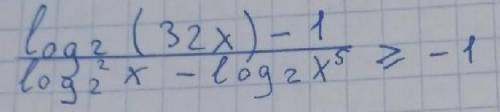 log₂ (32x) - 1
log₂² x - log₂ x⁵ ≥ -1